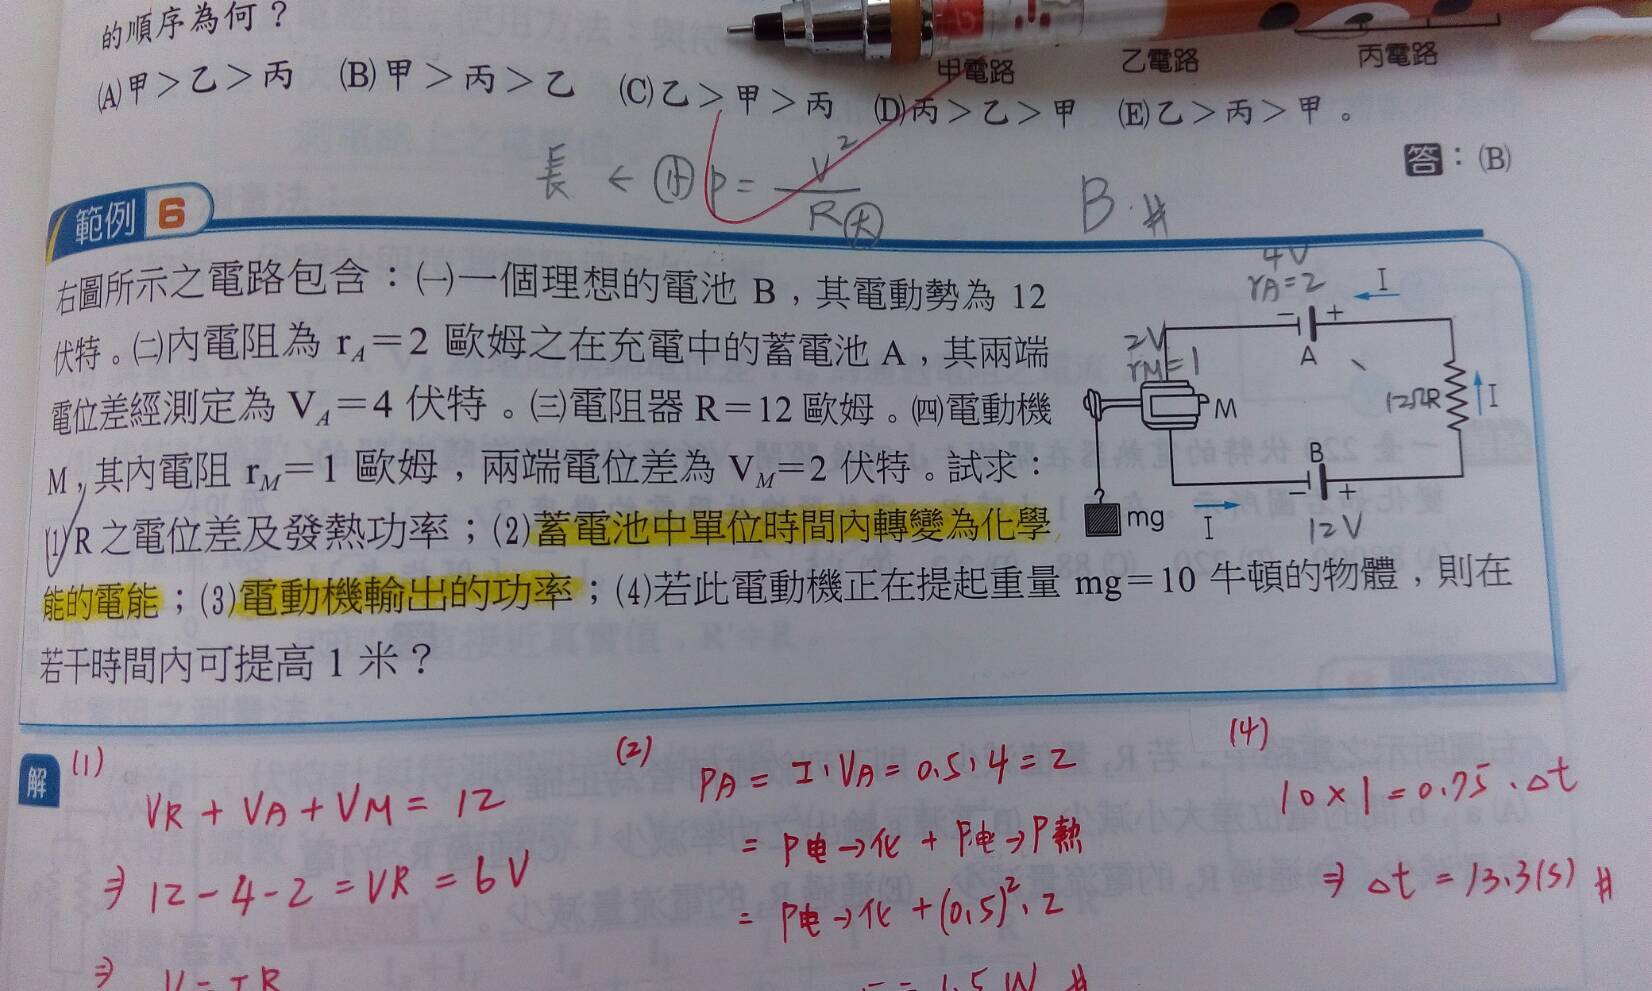 的順序為何？
甲電路 乙電路 丙電路
(A)甲＞乙＞丙 (B)甲＞丙＞乙 (C)乙＞甲＞丙 (D)丙＞乙＞甲 (E)乙＞丙＞甲。
答：(B)
長 ← 小 P = V²/R 大
B.#
範例 6
右圖所示之電路包含：㈠一個理想的電池 B，其電動勢為 12
伏特。㈡內電阻為 r_A＝2 歐姆之在充電中的蓄電池 A，其兩端
電位差經測定為 V_A＝4 伏特。㈢電阻器 R＝12 歐姆。㈣電動機
M，其內電阻 r_M＝1 歐姆，兩端電位差為 V_M＝2 伏特。試求：
(1) R 之電位差及發熱功率；(2)蓄電池中單位時間內轉變為化學
能的電能；(3)電動機輸出的功率；(4)若此電動機正在提起重量 mg＝10 牛頓的物體，則在
若干時間內可提高 1 米？
4V
rA=2
I
− +
A
2V
rM=1
M
12Ω R
I
B
− +
mg
I
12V
解
(1)
VR + VA + VM = 12
⇒ 12 - 4 - 2 = VR = 6V
⇒ V = IR
(2)
PA = I·VA = 0.5·4 = 2
= P电→化 + P电→P熱
= P电→化 + (0.5)²·2
= 1.5 W #
(4)
10 × 1 = 0.75·Δt
⇒ Δt = 13.3(s) #